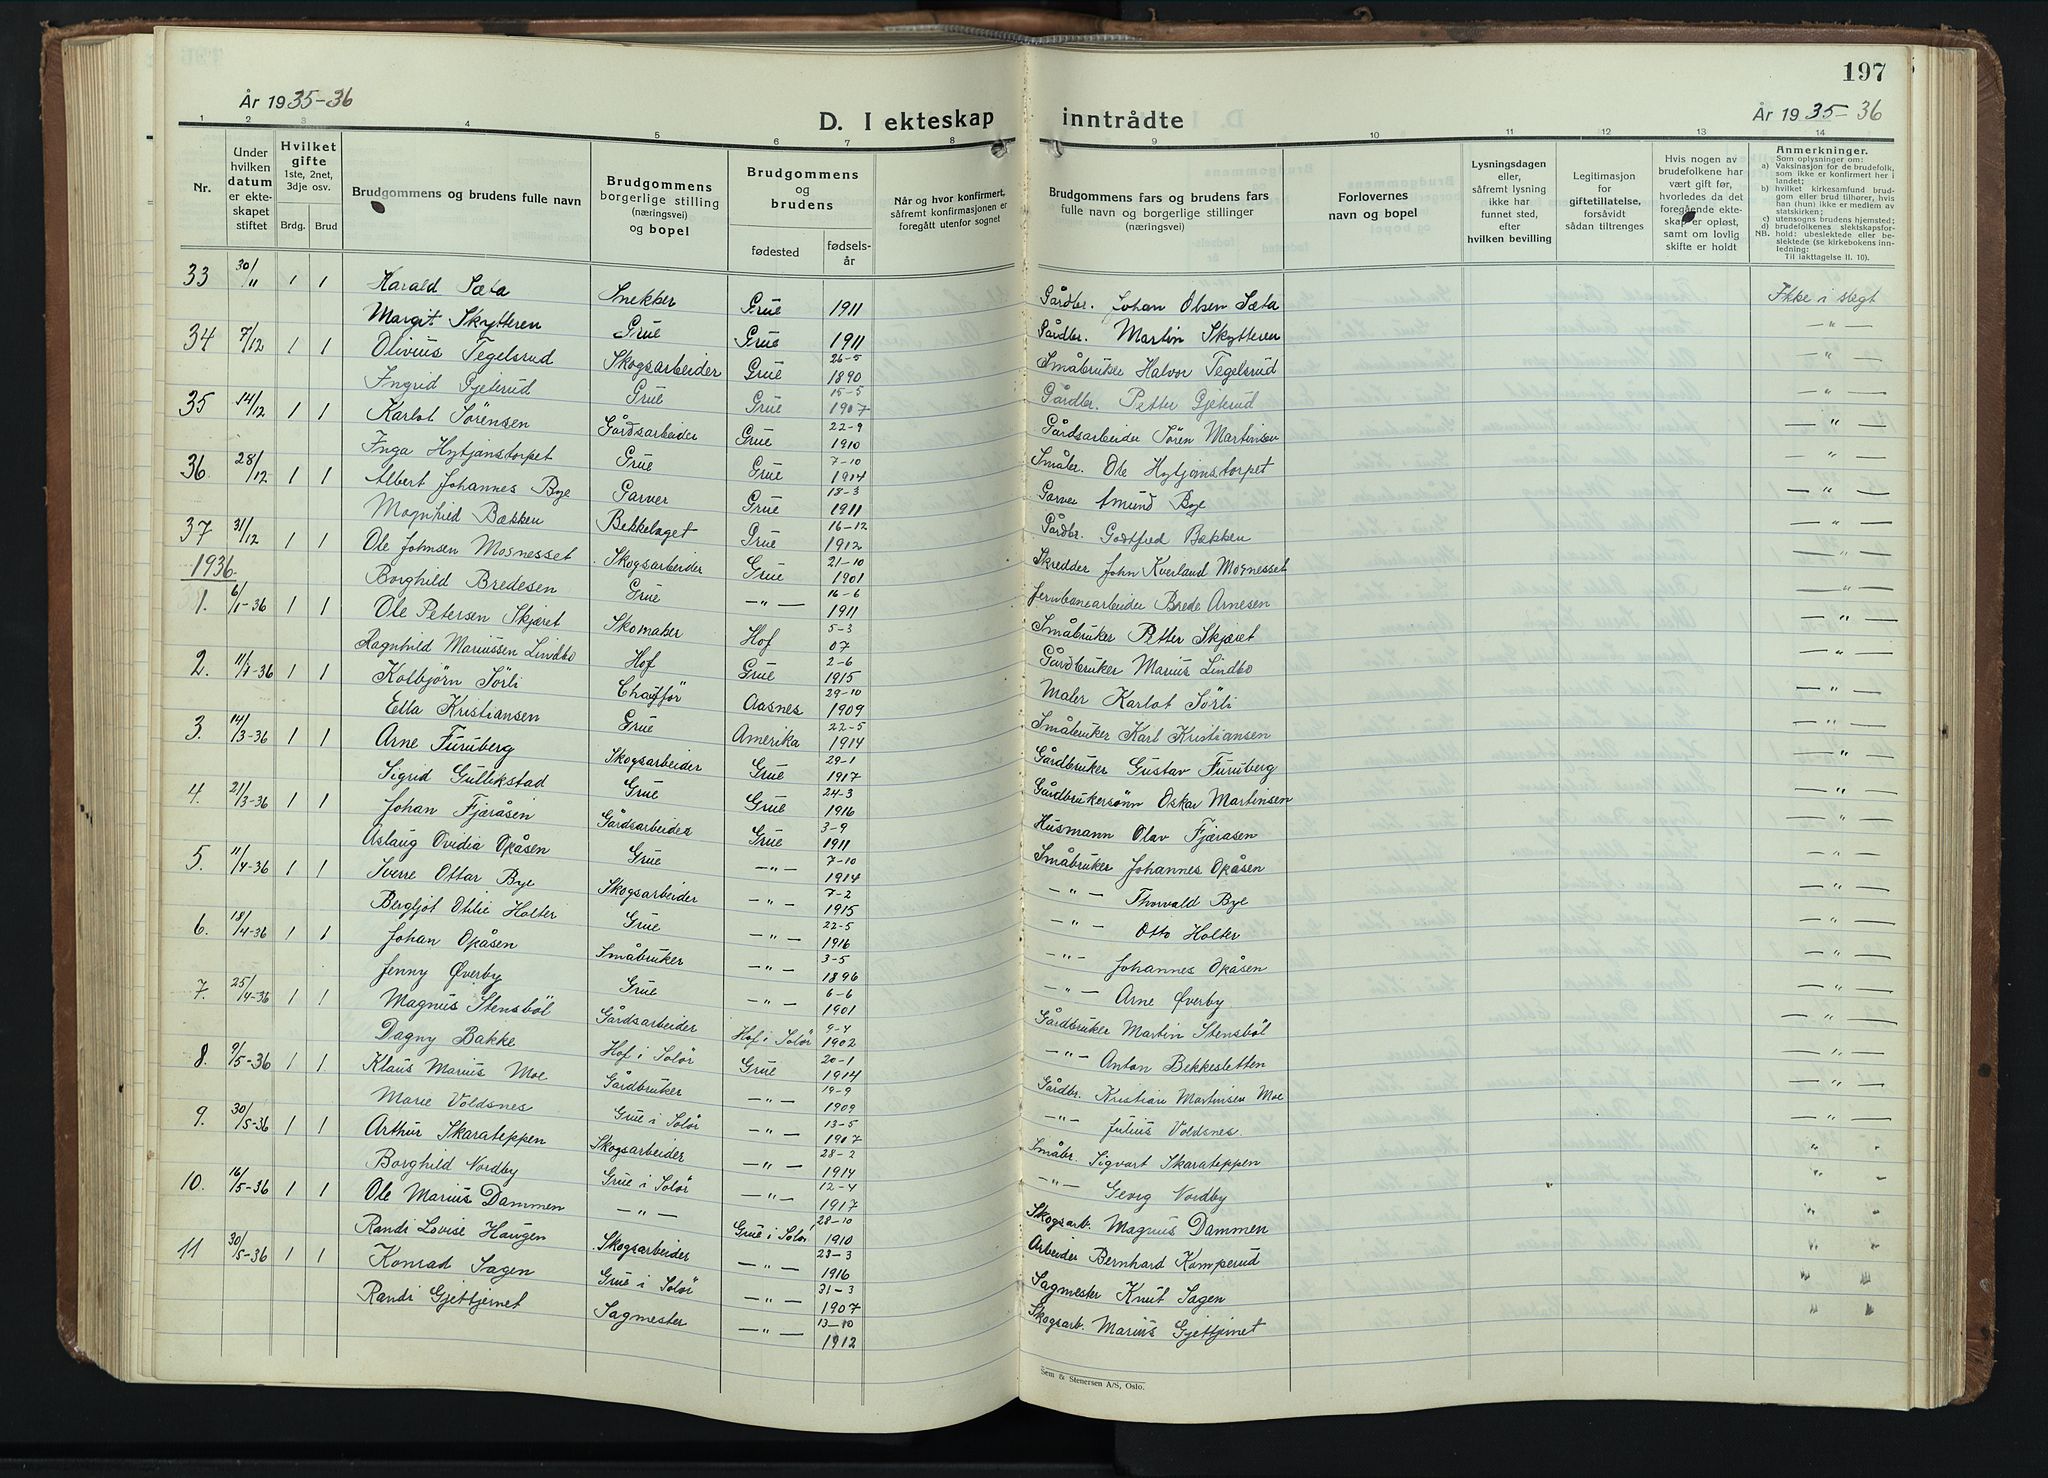 197
År 1935-36
D. I ekteskap inntrådte
År 1935-36
1 2 3 4 5 6 7 8 9 10 11 12 13 14
Nr.
Under hvilken datum er ekteskapet stiftet
Hvilket gifte 1ste, 2net, 3dje osv.
Brdg. Brud
Brudgommens og brudens fulle navn
Brudgommens borgerlige stilling (næringsvei) og bopel
Brudgommens og brudens
fødested
fødselsår
Når og hvor konfirmert, såfremt konfirmasjonen er foregått utenfor sognet
Brudgommens fars og brudens fars fulle navn og borgerlige stillinger (næringsvei)
Forlovernes navn og bopel
Lysningsdagen eller, såfremt lysning ikke har funnet sted, efter hvilken bevilling
Legitimasjon for giftetillatelse, forsåvidt sådan tiltrenges
Hvis nogen av brudefolkene har vært gift før, hvorledes da det foregående ekteskap er opløst, samt om lovlig skifte er holdt
Anmerkninger.
Som oplysninger om:
a) Vaksinasjon for de brudefolk, som ikke er konfirmert her i landet;
b) hvilket kirkesamfund brudgom eller brud tilhører, hvis han (hun) ikke er medlem av statskirken;
c) utensogns brudens hjemsted;
d) brudefolkenes slektskapsforhold: ubeslektede eller beslektede (se kirkebokens innledning:
NB. Til iakttagelse II. 10).
33 30/11 1 1 Harald Sæta Snekker Grue 1911 Gårdbr. Johan Olsen Sæta Ikke i slegt
Margit Skytteren Grue Grue 1911 Gårdbr. Martin Skytteren — " —
34 7/12 1 1 Olivius Tegelsrud Skogsarbeider Grue 26-5 1890 Småbruker Halvor Tegelsrud — " —
Ingrid Gjeterud Grue Grue 15-5 1907 Gårdbr. Petter Gjeterud — " —
35 14/12 1 1 Karlot Sörensen Gårdsarbeider Grue 22-9 1910 Gårdsarbeider Sören Martinsen — " —
Inga Hytjanstorpet Grue Grue 7-10 1914 Småbr. Ole Hytjanstorpet — " —
36 28/12 1 1 Albert Johannes Bye Garver Grue 18-3 1911 Garver Amund Bye — " —
Magnhild Bækken Bekkelaget Grue 16-12 1912 Gårdbr. Godtfred Bækken — " —
37 31/12 1 1 Ole Johnsen Mosnesset Skogsarbeider Grue 21-10 1901 Skredder John Kverland Mognesset — " —
1936
Borghild Bredesen Grue — " — 16-6 1911 Jernbanearbeider Brede Arnesen — " —
1. 6/1-36 1 1 Ole Petersen Skjæret Skomaker Hof 5-3 07 Småbruker Petter Skjæret — " —
Ragnhild Mariussen Lindbo Hof Grue 2-6 1915 Gårdbruker Marius Lindbo — " —
2. 11/1-36 1 1 Kolbjörn Sörli Chafför Aasnes 29-10 1909 Maler Karlot Sörli — " —
Ella Kristiansen Grue Amerika 22-5 1914 Småbruker Karl Kristiansen — " —
3. 14/3-36 1 1 Arne Furuberg Skogsarbeider Grue 29-1 1917 Gårdbruker Gustav Furuberg — " —
Sigrid Gullikstad Grue Grue 24-3 1916 Gårdbrukersönn Oskar Martinsen — " —
4. 21/3-36 1 1 Johan Fjæråsen Gårdsarbeider Grue 3-9 1911 Husmann Olav Fjæråsen — " —
Aslaug Ovidia Opåsen Grue — " — 7-10 1914 Småbruker Johannes Opåsen — " —
5. 11/4-36 1 1 Sverre Ottar Bye Skogsarbeider — " — 7-2 1915 — " — Thorvald Bye — " —
Bergljot Otilie Holter Grue — " — 22-5 1916 — " — Otto Holter — " —
6. 18/4-36 1 1 Johan Opåsen Småbruker — " — 3-5 1896 — " — Johannes Opåsen — " —
Jenny Øverby Grue — " — 6-6 1901 — " — Arne Øverby — " —
7. 25/4-36 1 1 Magnus Stensböl Gårdsarbeider Hof i Solör 9-4 1902 Gårdbruker Martin Stensböl — " —
Dagny Bakke Hof i Solör Grue 20-1 1914 — " — Anton Bekkesletten — " —
8. 9/5-36 1 1 Klaus Marius Moe Gårdbruker — " — 19-9 1909 Gårdbr. Kristian Martinsen Moe — " —
Marie Voldsnes Grue i Solör — " — 13-5 1907 — " — Julius Voldsnes. — " —
9. 30/5-36 1 1 Arthur Skarateppen Skogsarbeider — " — 28-2 1914 Småbr. Sigvart Skarateppen " "
Borghild Nordby Grue i Solör — " — 12-4 1917 — " — Georg Nordby " "
10. 16/5-36 1 1 Ole Marius Dammen — " — Grue i Solör 28-10 1910 Skogsarb. Magnus Dammen " "
Randi Lovise Haugen Skogsarbeider — " — 23-3 1916 Arbeider Bernhard Komperud " "
11 30/5-36 1 1 Konrad Sagen Grue i Solör — " — 31-3 1907 Sagmester Knut Sagen " "
Randi Gjettjernet Sagmester — " — 13-10 1912 Skogsarb. Marius Gjettjernet " "
Sem & Stenersen A/S, Oslo.